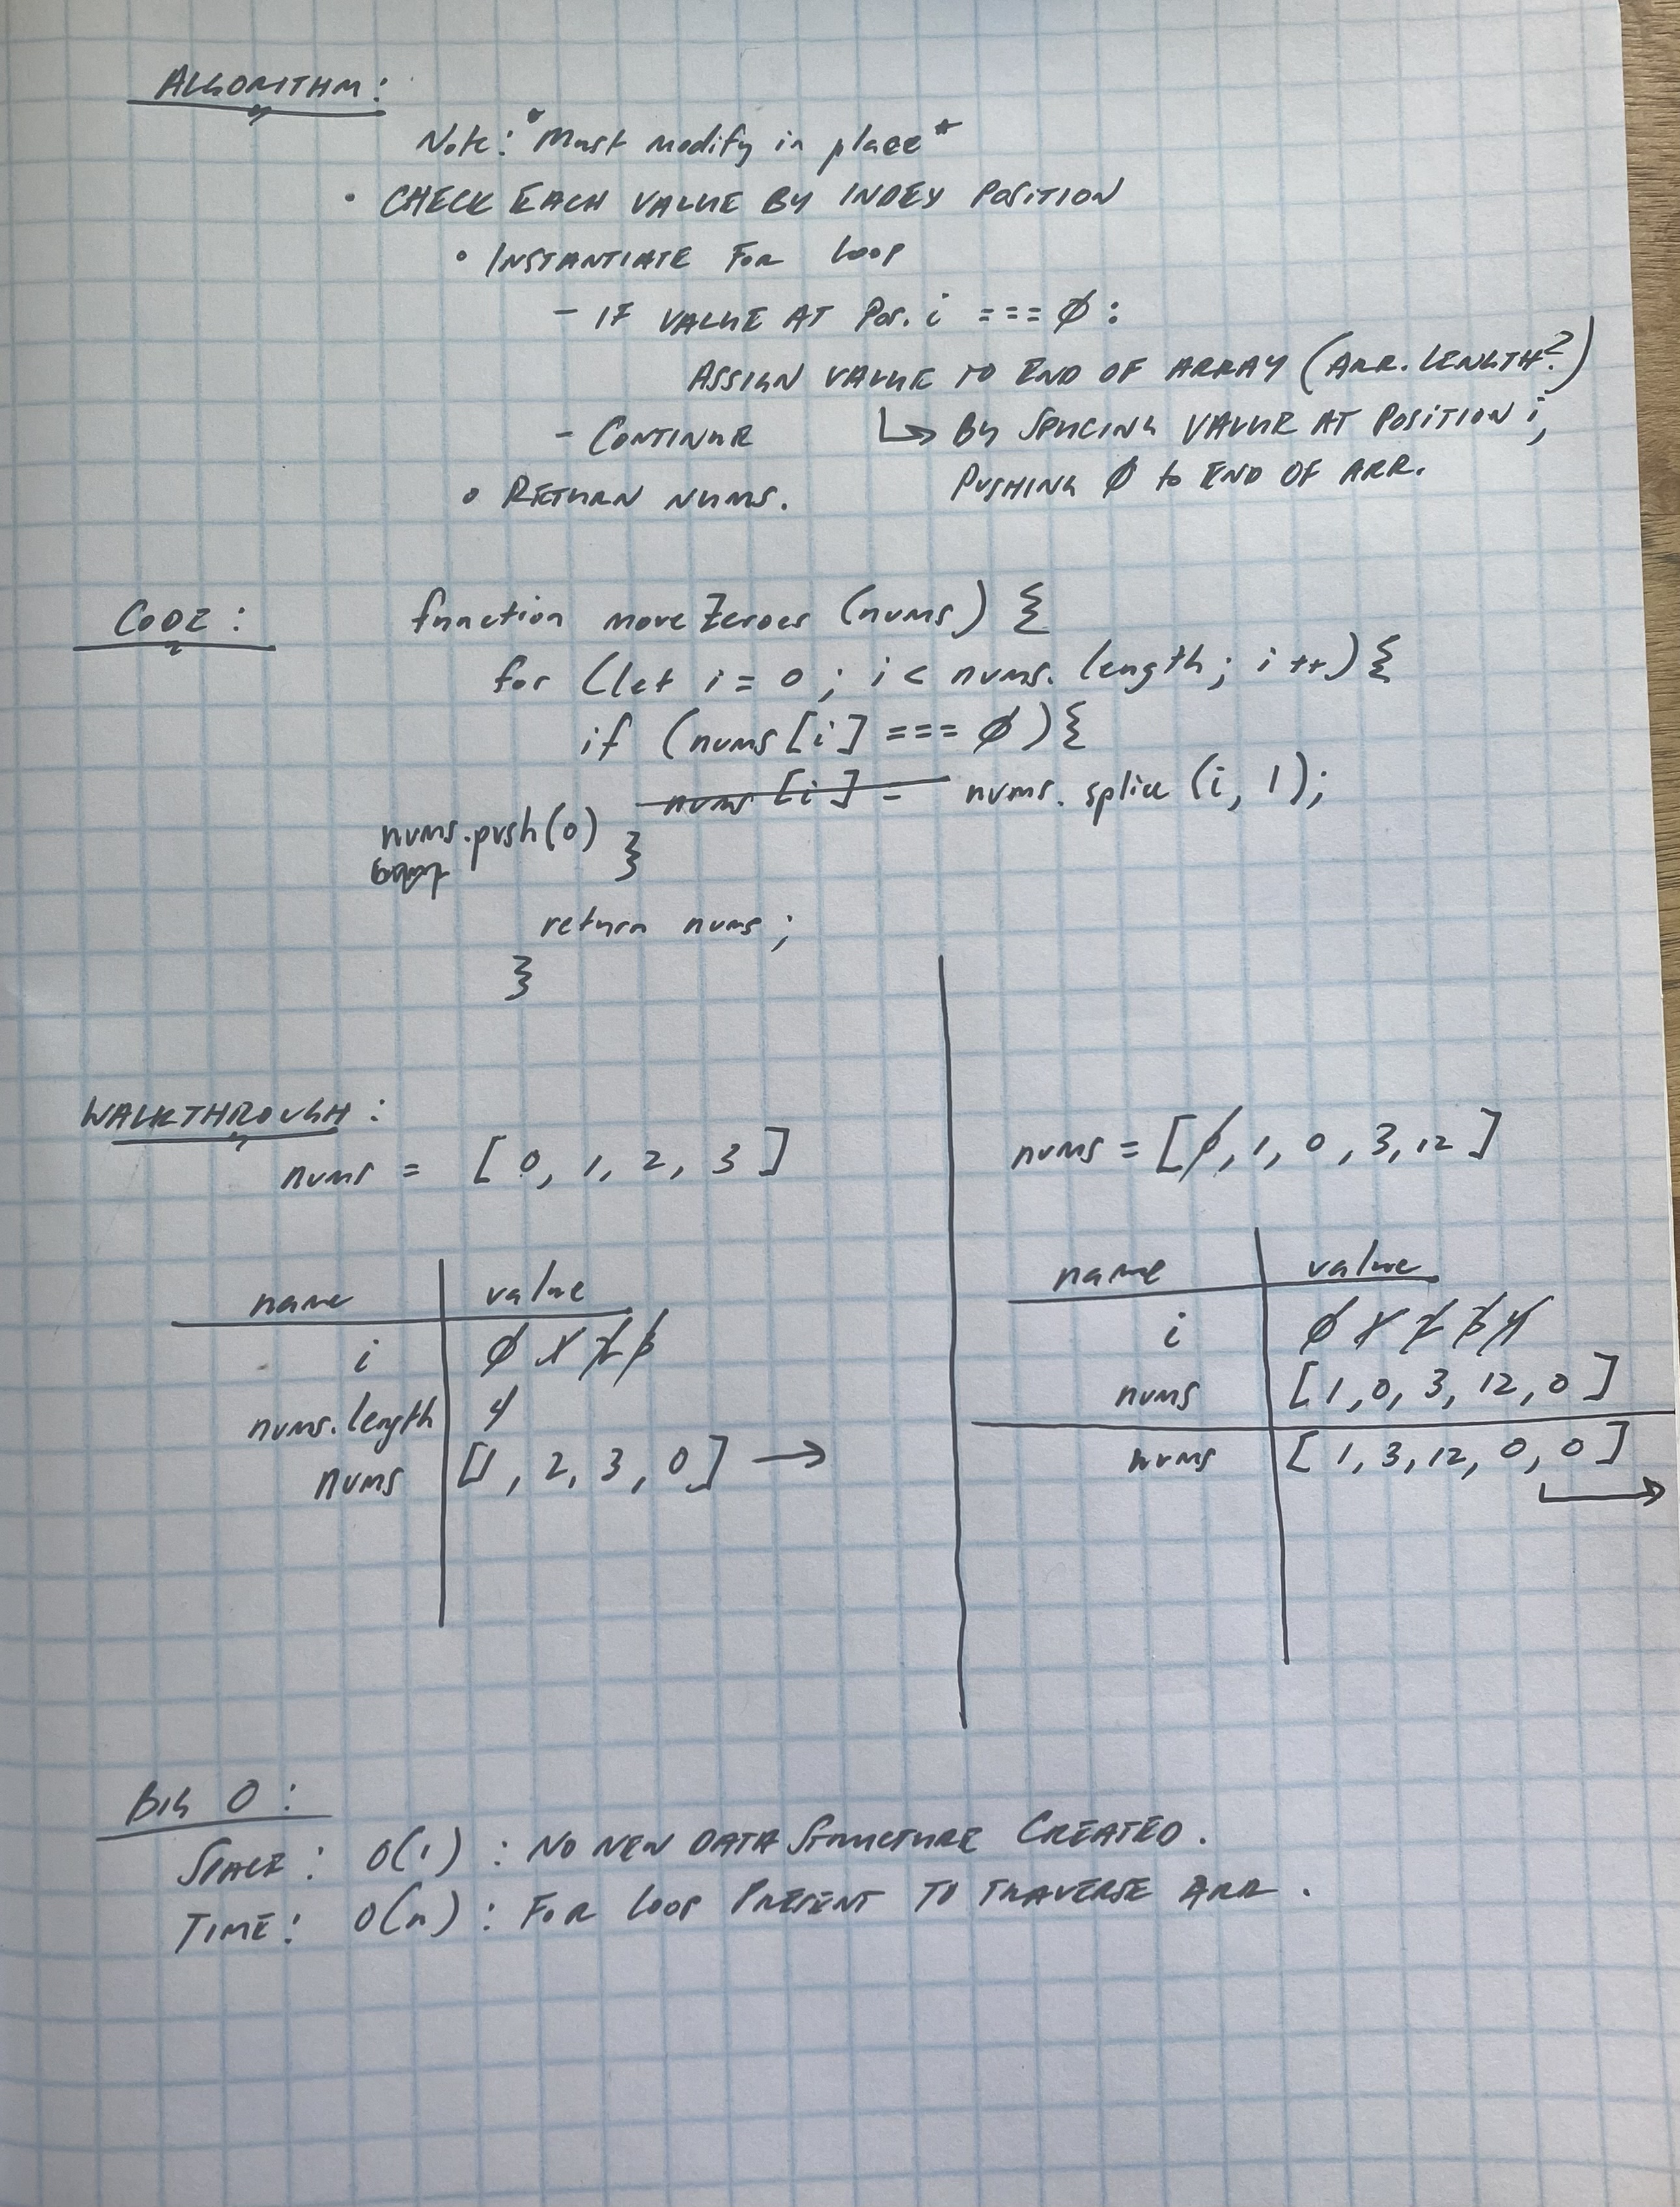 ALGORITHM:
Note: *Must modify in place*
• CHECK EACH VALUE BY INDEX POSITION
• INSTANTIATE FOR LOOP
- IF VALUE AT POS. i === Ø:
ASSIGN VALUE TO END OF ARRAY (ARR. LENGTH?)
- CONTINUE ↳ BY SPLICING VALUE AT POSITION i,
PUSHING Ø to END OF ARR.
• RETURN NUMS.
CODE:
function moveZeroes (nums) {
for (let i = 0; i < nums.length; i++) {
if (nums[i] === Ø) {
nums[i] = nums.splice(i, 1);
nums.push(0)
}
return nums;
}
WALKTHROUGH:
nums = [0, 1, 2, 3]
name value
i 0 1 2 3
nums.length 4
nums [1, 2, 3, 0] →
nums = [0, 1, 0, 3, 12]
name value
i 0 1 2 3 4
nums [1, 0, 3, 12, 0]
nums [1, 3, 12, 0, 0]
BIG O:
SPACE: O(1): NO NEW DATA STRUCTURE CREATED.
TIME: O(n): FOR LOOP PRESENT TO TRAVERSE ARR.